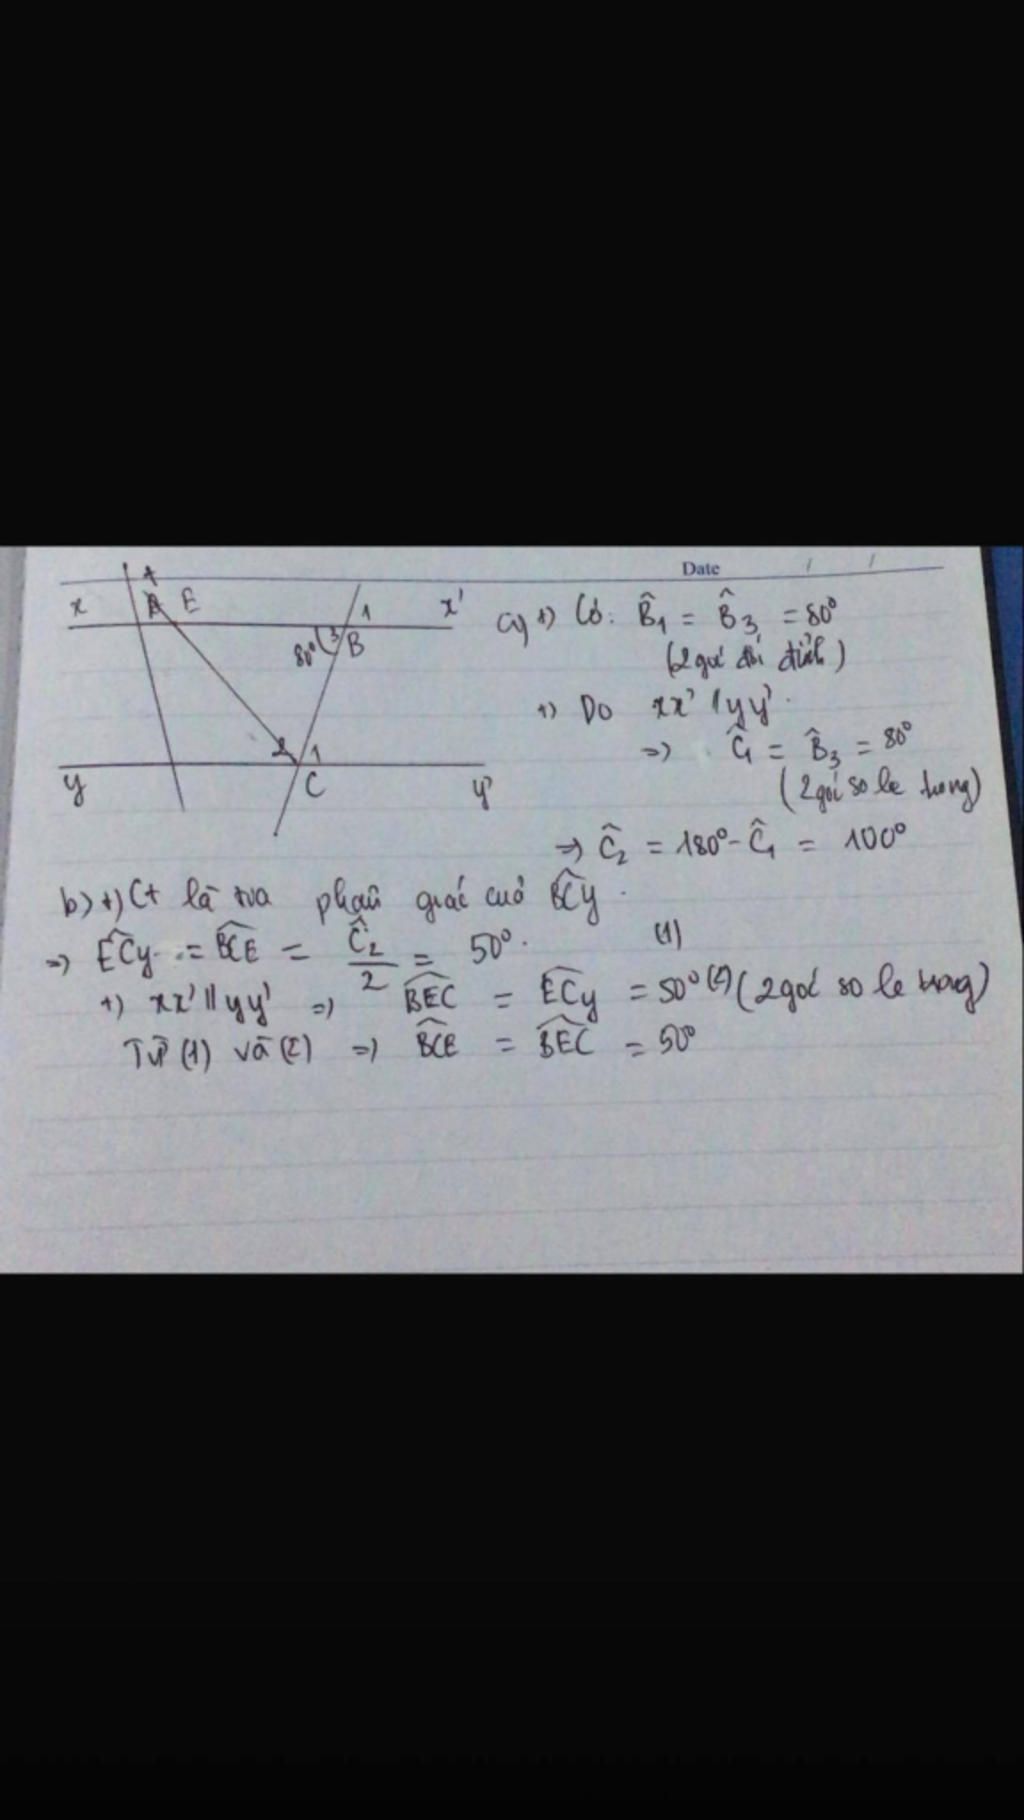 Date / /
t
x A E 1 x'
80° 3 B
2 1
y C y'
a) +) Có: B̂₁ = B̂₃ = 80°
(2 góc đối đỉnh)
+) Do xx' // yy'.
=> Ĉ₁ = B̂₃ = 80°
(2 góc so le trong)
=> Ĉ₂ = 180° - Ĉ₁ = 100°
b) +) Ct là tia phân giác của BCy.
=> ECy = BCE = Ĉ₂/2 = 50°. (1)
+) xx' // yy' => BEC = ECy = 50° (2) (2 góc so le trong)
Từ (1) và (2) => BCE = BEC = 50°